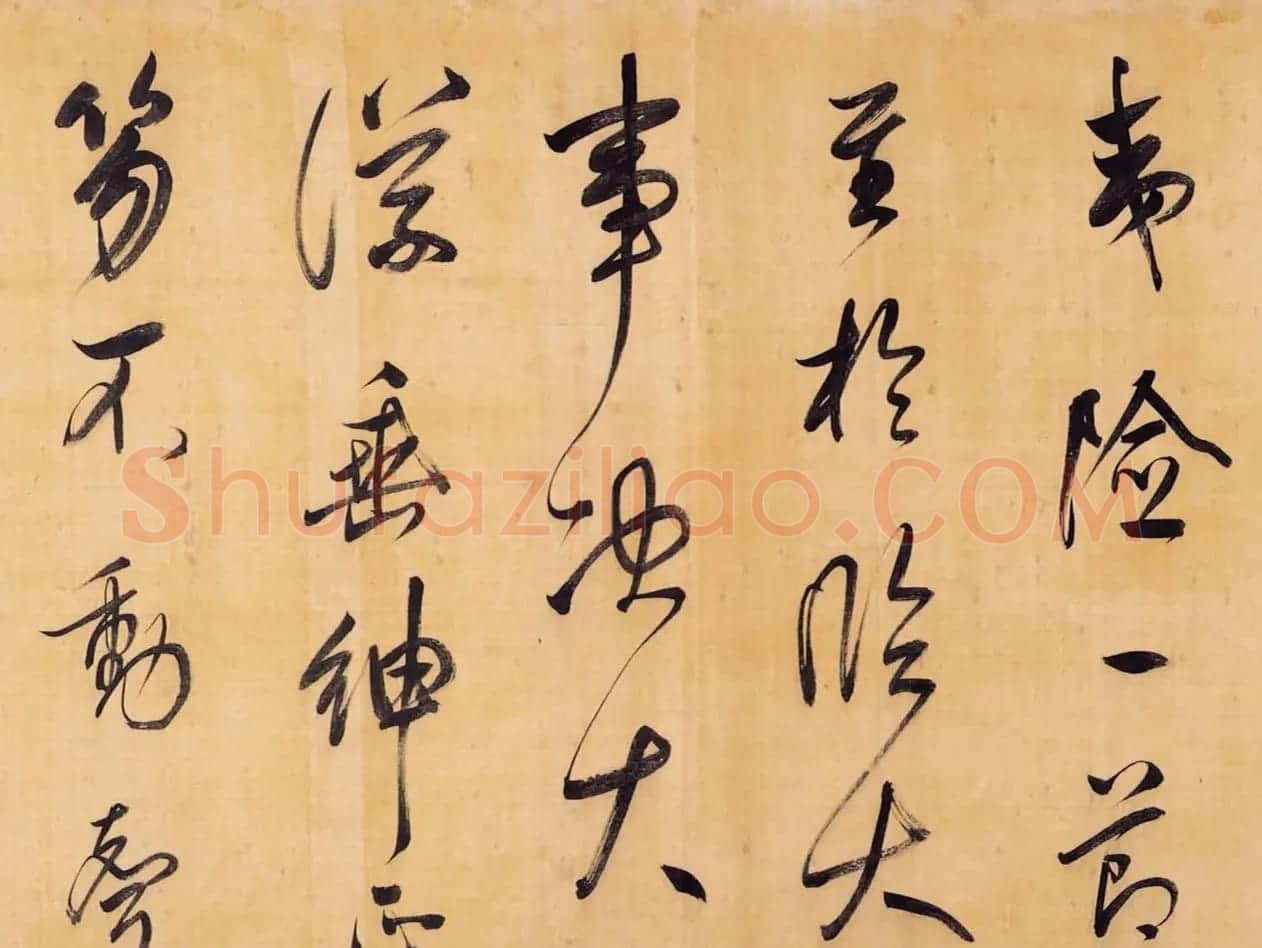 夷險一節
至於臨大
事決大
議垂紳正
笏不動聲
Shufaziliao.COM